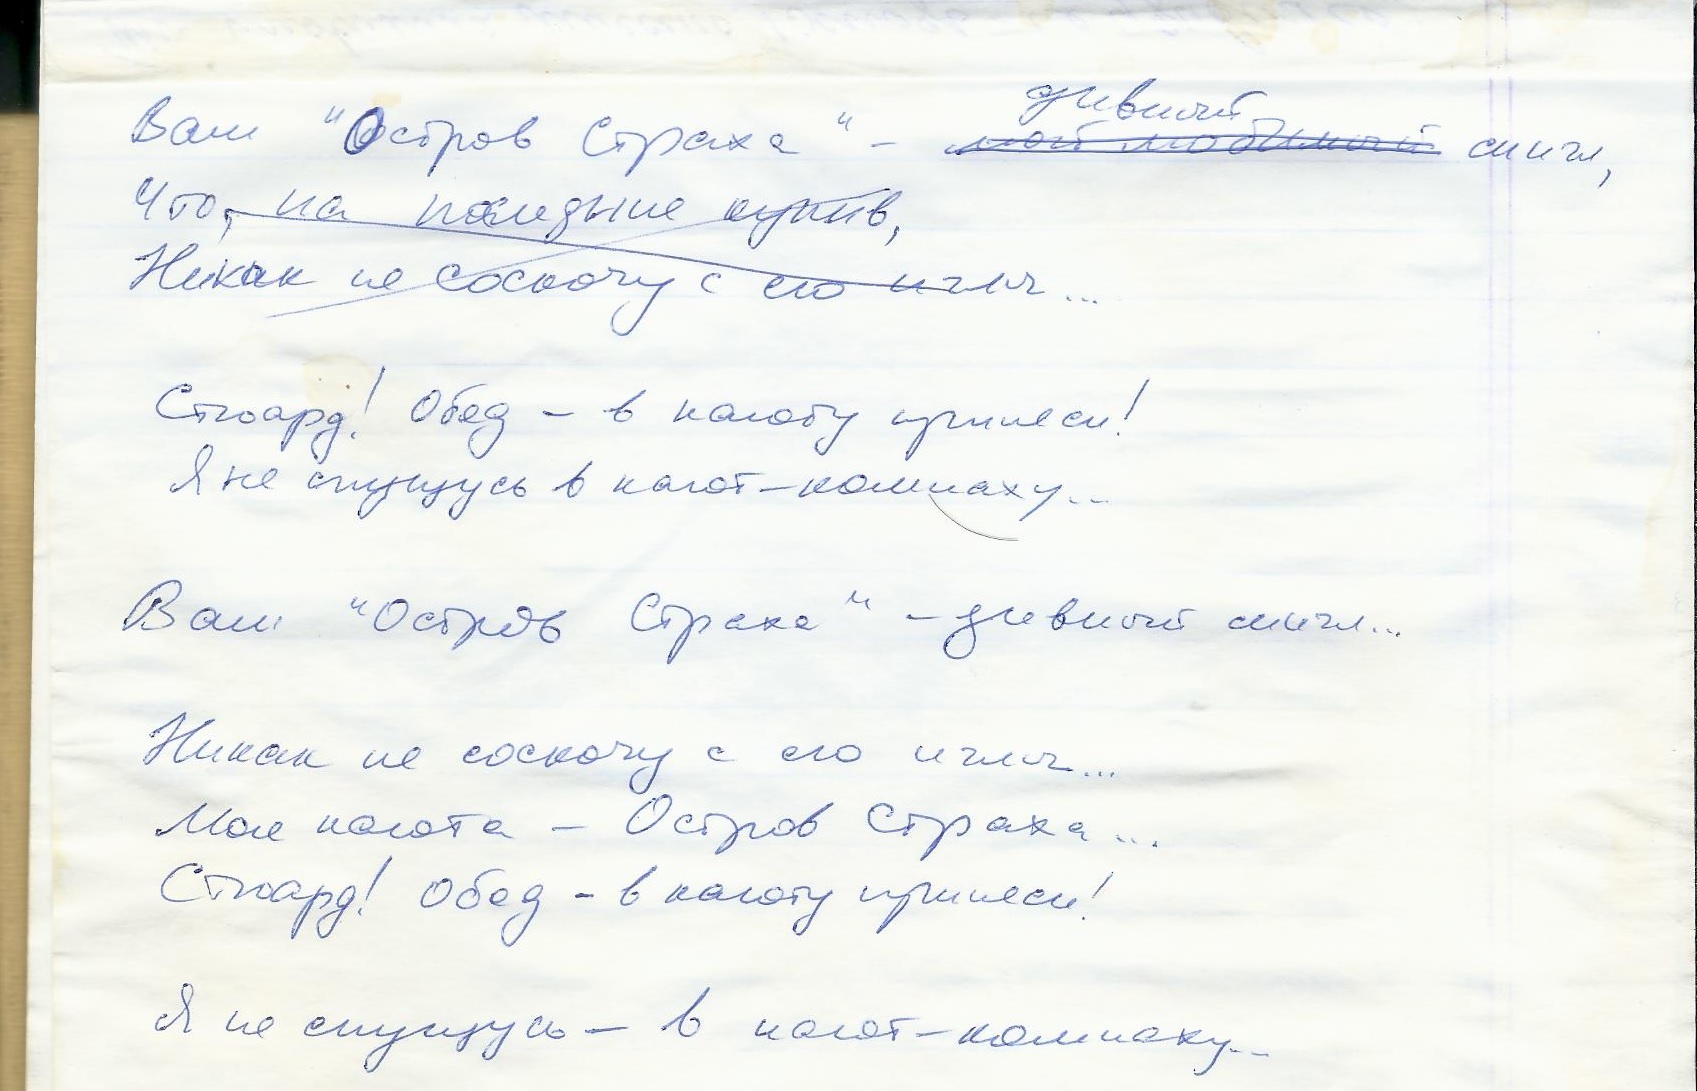 дивный
Ваш "Остров Страха" - мой любимый сингл,
Что, на последние купив,
Никак не соскочу с его иглы...
Стюард! Обед - в каюту принеси!
Я не спущусь в кают-компаху...
Ваш "Остров Страха" - дивный сингл...
Никак не соскочу с его иглы...
Моя каюта - Остров Страха...
Стюард! Обед - в каюту принеси!
Я не спущусь - в кают-компаху...